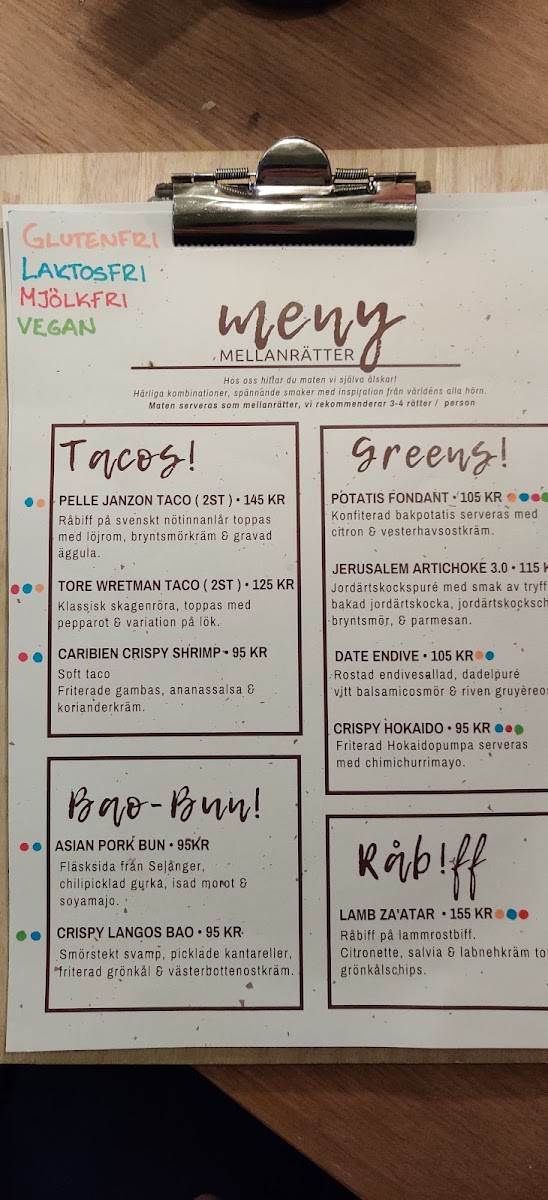 GLUTENFRI
LAKTOSFRI
MJÖLKFRI
VEGAN
meny
MELLANRÄTTER
Hos oss hittar du maten vi själva älskar!
Härliga kombinationer, spännande smaker med inspiration från världens alla hörn.
Maten serveras som mellanrätter, vi rekommenderar 3-4 rätter / person
Tacos!
PELLE JANZON TACO ( 2ST ) • 145 KR
Råbiff på svenskt nötinnanlår toppas
med löjrom, bryntsmörkräm & gravad
äggula.
TORE WRETMAN TACO ( 2ST ) • 125 KR
Klassisk skagenröra, toppas med
pepparot & variation på lök.
CARIBIEN CRISPY SHRIMP • 95 KR
Soft taco
Friterade gambas, ananassalsa &
korianderkräm.
Bao-Bun!
ASIAN PORK BUN • 95KR
Fläsksida från Selånger,
chilipicklad gurka, isad morot &
soyamajo.
CRISPY LANGOS BAO • 95 KR
Smörstekt svamp, picklade kantareller,
friterad grönkål & västerbottenostkräm.
Greens!
POTATIS FONDANT • 105 KR
Konfiterad bakpotatis serveras med
citron & vesterhavsostkräm.
JERUSALEM ARTICHOKE 3.0 • 115 K
Jordärtskockspuré med smak av tryff
bakad jordärtskocka, jordärtskocksch
bryntsmör, & parmesan.
DATE ENDIVE • 105 KR
Rostad endivesallad, dadelpuré
vitt balsamicosmör & riven gruyèreos
CRISPY HOKAIDO • 95 KR
Friterad Hokaidopumpa serveras
med chimichurrimayo.
Råb!ff
LAMB ZA'ATAR • 155 KR
Råbiff på lammrostbiff.
Citronette, salvia & labnehkräm to
grönkålschips.